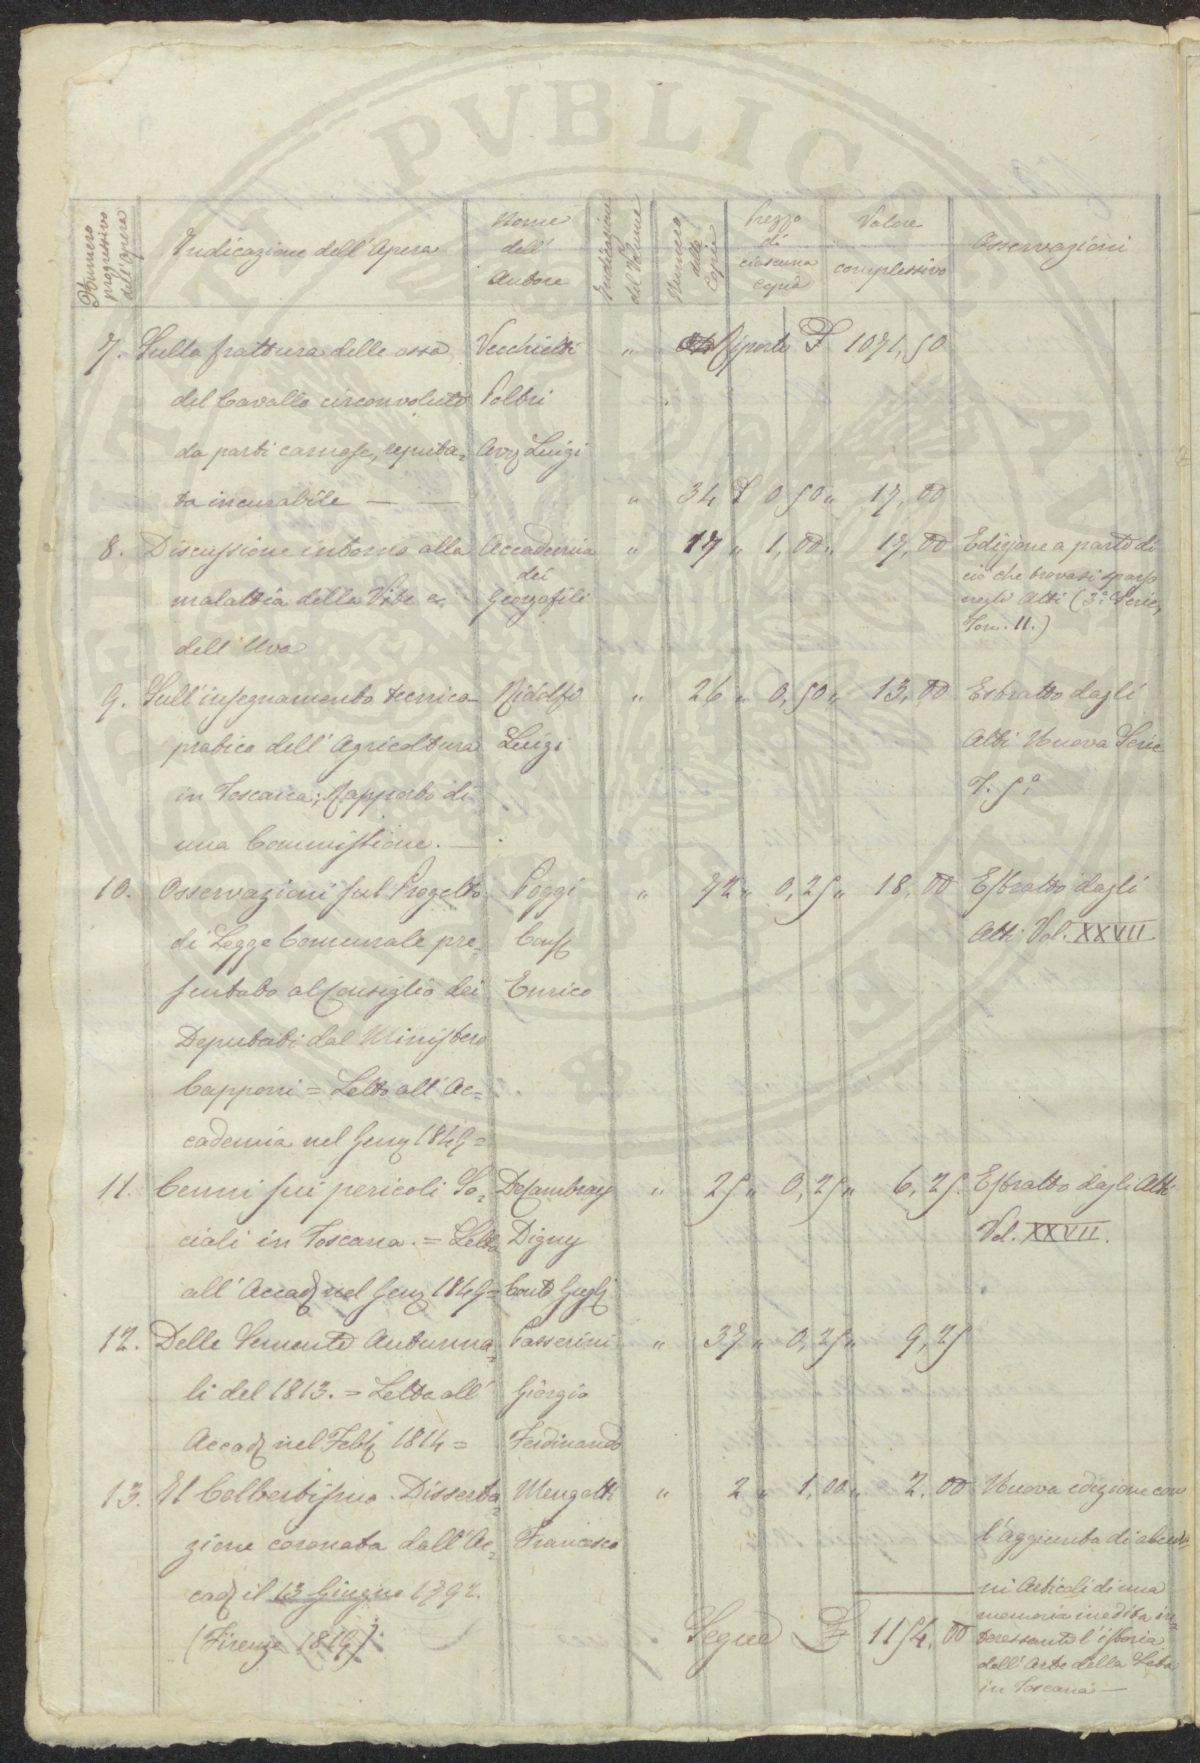 PVBLICAE VTILITATI
Numero progressivo dell'Opera
Indicazione dell'Opera
Nome dell' Autore
Indicazione del Volume
Numero delle Copie
Prezzo di ciascuna Copia
Valore complessivo
Osservazioni
7. Sulla frattura delle ossa Vecchietti " Riporto £ 1071,50
del Cavallo circonvolute Poltri
da parti carnose, reputa= Avv Luigi
ta incurabile — — " 34 £ 0 50 " 17,00
8. Discussione intorno alla Accademia " 17 " 1,00 " 17,00 Edizione a parte di
dei ciò che trovasi sparso
malattia della Vite e Georgofili negli Atti (3.a Serie,
Tom. II.)
dell'Uva
9. Sull'insegnamento tecnico Ridolfi " 26 " 0,50 " 13,00 Estratto dagli
pratico dell'Agricoltura Luigi Atti Nuova Serie
in Toscana; Rapporto di T. 5.o
una Commissione. —
10. Osservazioni sul Progetto Poggi " 72 " 0,25 " 18,00 Estratto dagli
di Legge Comunale pre= Cons Atti Vol. XXVII
sentato al Consiglio dei Enrico
Deputati dal Ministero
Capponi = Letto all'Ac=
cademia nel Gen 1849 =
11. Cenni sui pericoli So= DeCambray " 25 " 0,25 " 6,25 Estratto dagli Atti
ciali in Toscana. = Letta Digny Vol. XXVII.
all'Accad nel Gen 1849 = Conte Gugl
12. Delle Semente Autunna= Passerini " 37 " 0,25 " 9,25
li del 1813. = Letta all' Giorgio
Accad nel Febb 1814 = Ferdinando
13. Il Colbertismo. Disserta= Mengotti " 2 " 1,00 " 2.00 Nuova edizione con
zione coronata dall'Ac= Francesco l'aggiunta di alcu=
cad il 13 Giugno 1792. ni Articoli di una
memoria inedita in=
(Firenze 1819). Segue £ 1154,00 teressante l'istoria
dell'Arte della Seta
in Toscana —